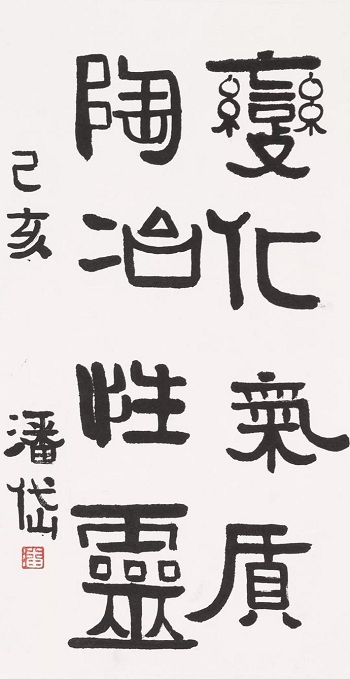 變化氣質
陶冶性靈
己亥
潘岱
潘